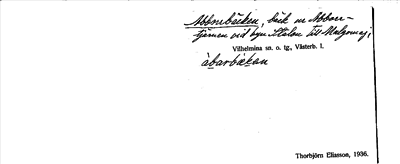 Abborrbäcken, bäck ur Abborr-
tjärnen vid byn Stalon till Malgomaj i
Vilhelmina sn. o. tg., Västerb. l.
àbarbäkan
Thorbjörn Eliasson, 1936.